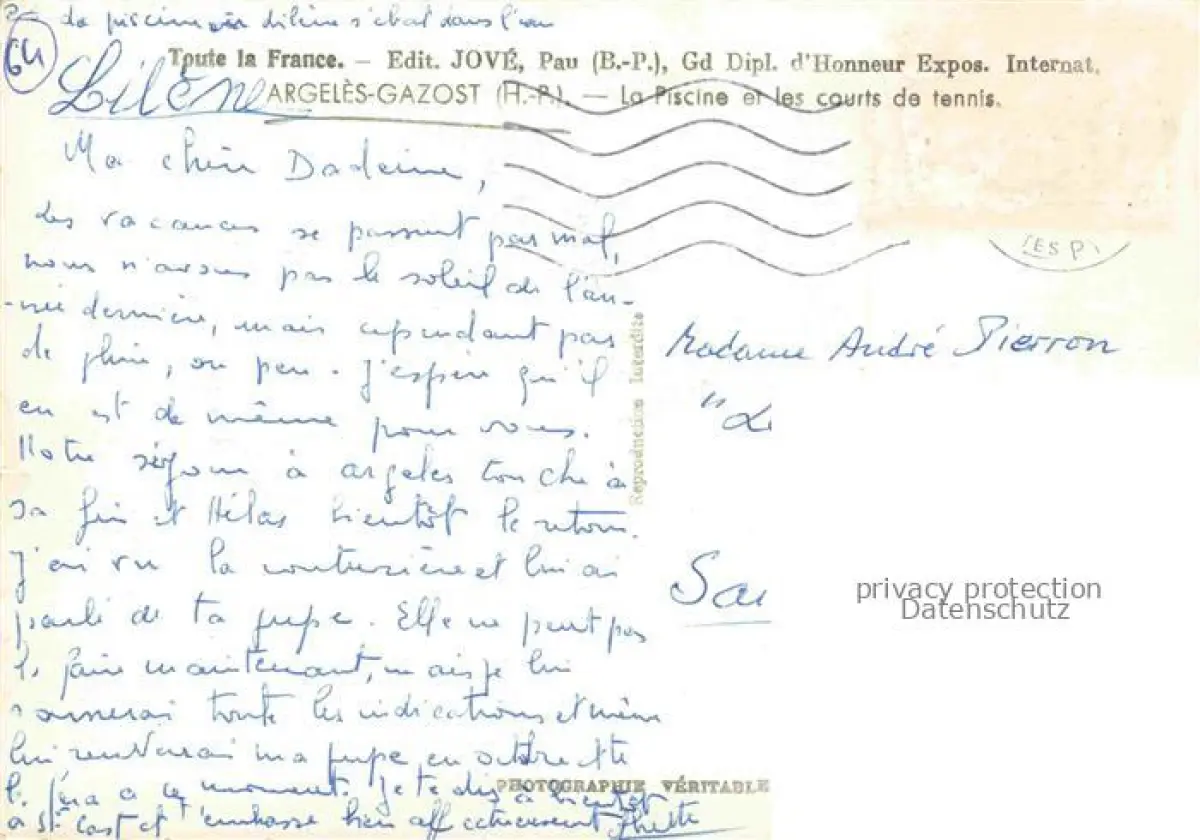 La piscine où Lilène s'ébat dans l'eau
64
Toute la France. — Edit. JOVÉ, Pau (B.-P.), Gd Dipl. d'Honneur Expos. Internat.
Lilène
ARGELÈS-GAZOST (H.-P.). — La Piscine et les courts de tennis.
Ma chère
des vacances se passent pas mal,
nous n'avons pas le soleil de l'an-
-née dernière, mais cependant pas
de pluie, ou peu. J'espère qu'il
en est de même pour vous.
Notre séjour à argeles touche à
sa fin et Hélas bientôt le retour.
J'ai vu la couturière et lui ai
parlé de ta jupe. Elle ne peut pas
la faire maintenant, mais je lui
donnerai toute les indications et même
lui renverrai ma jupe en octobre et te
la fera a ce moment. Je te dis à bientôt
a St Cast et t'embrasse bien affectueusement
Reproduction Interdite
PHOTOGRAPHIE VÉRITABLE
Madame André Pierron
"L
Sai
privacy protection
Datenschutz